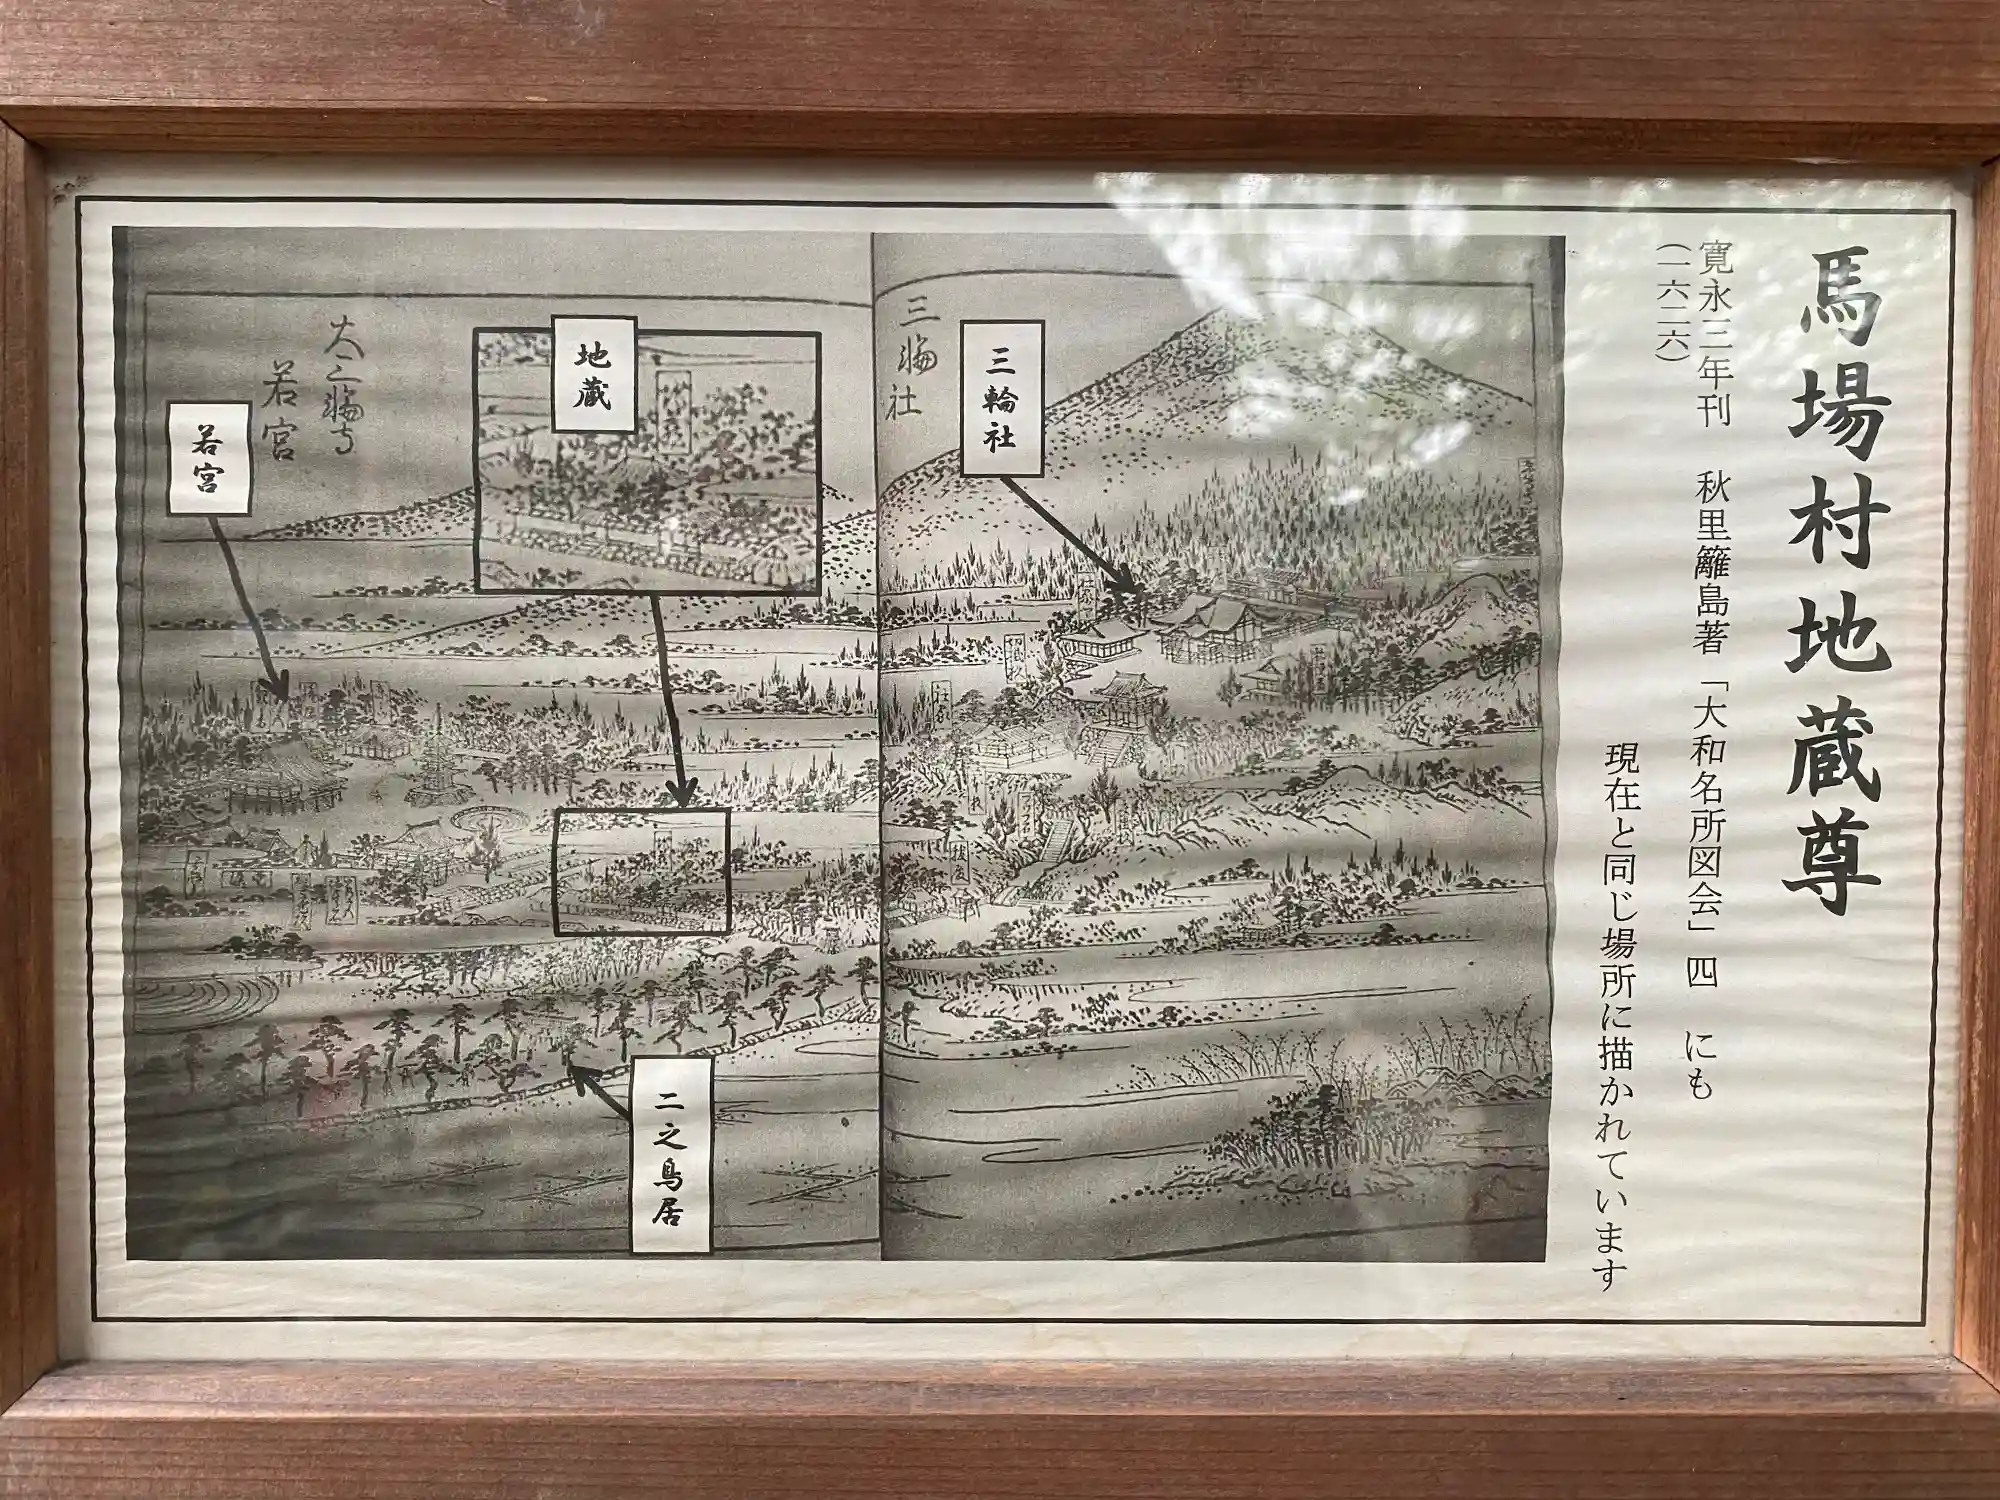 馬場村地蔵尊
寛永三年刊　秋里籬島著「大和名所図会」四　にも
(一六二六)
現在と同じ場所に描かれています
三輪社
三輪社
地蔵
大三輪寺
若宮
若宮
二之鳥居